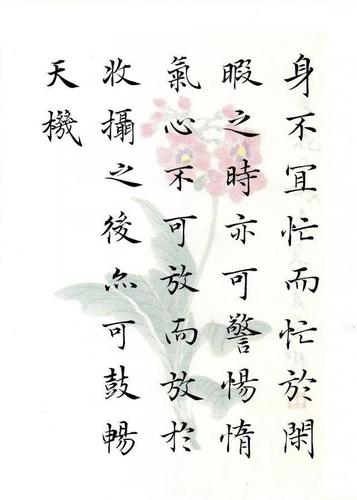 身不宜忙而忙於閑
暇之時亦可警惕惰
氣心不可放而放於
收攝之後亦可鼓暢
天機